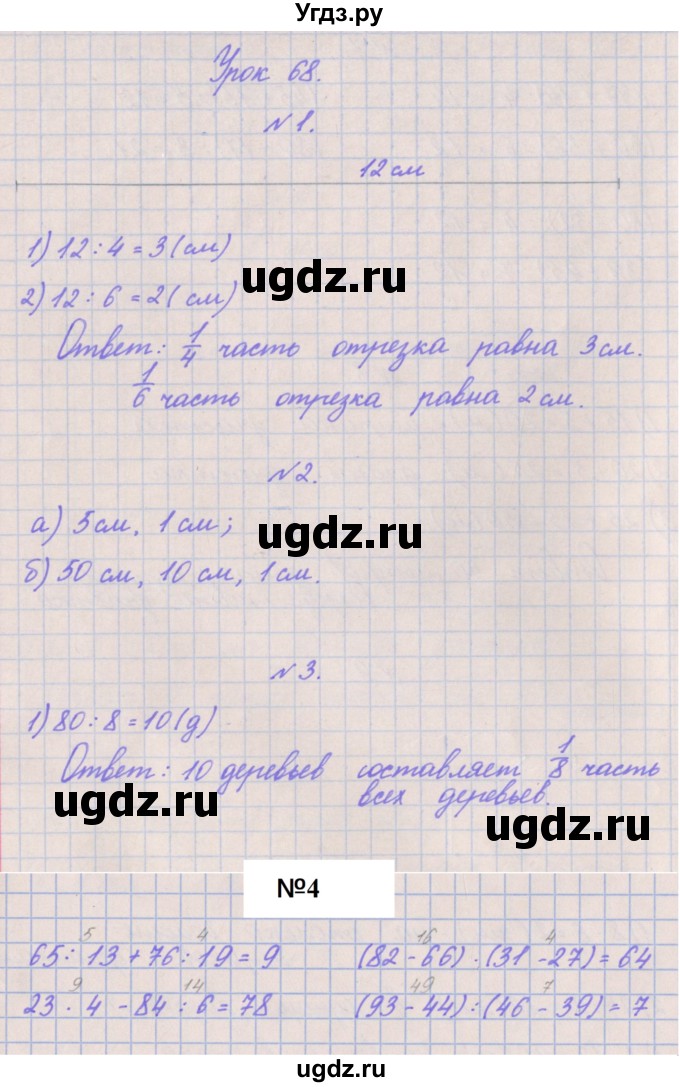 Угдз.ру
Урок 68.
№1.
12 см
1) 12 : 4 = 3 (см)
ugdz.ru
2) 12 : 6 = 2 (см)
Ответ: 1/4 часть отрезка равна 3 см.
1/6 часть отрезка равна 2 см.
№2.
а) 5 см, 1 см;
ugdz.ru
б) 50 см, 10 см, 1 см.
№3.
1) 80 : 8 = 10 (д)
Ответ: 10 деревьев составляет 1/8 часть
всех деревьев.
ugdz.ru
ugdz.ru
№4
5 4 16 4
65 : 13 + 76 : 19 = 9 (82 - 66) · (31 - 27) = 64
9 14 49 7
23 · 4 - 84 : 6 = 78 (93 - 44) : (46 - 39) = 7
ugdz.ru